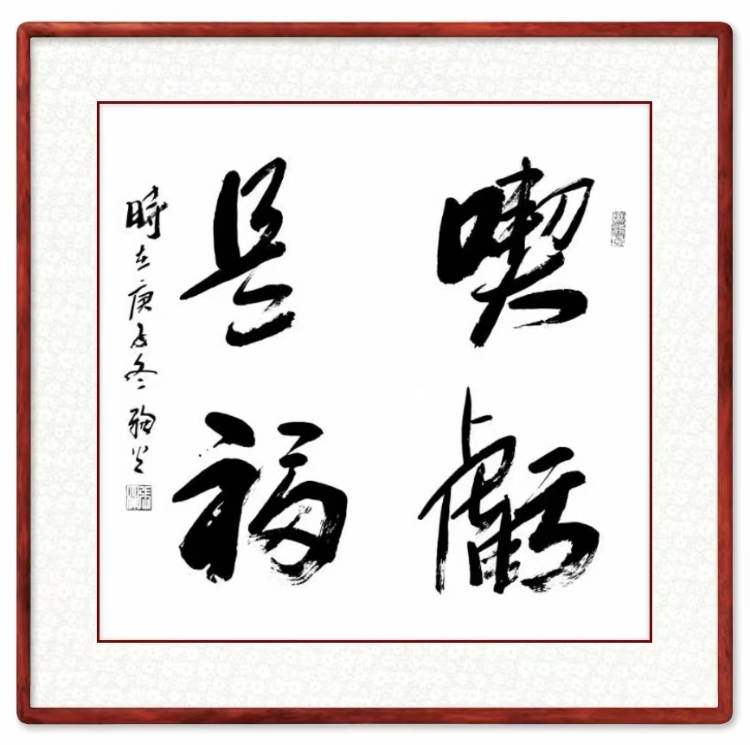 喫虧
是福
時在庚子冬